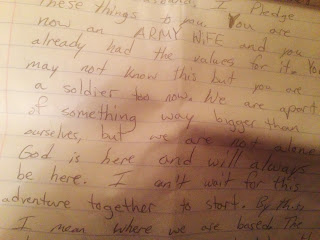 these things to you. You are
now an ARMY WIFE and you
already had the values for it. You
may not know this but you are
a soldier too now. We are apart
of something way bigger than
ourselves, but we are not alone
God is here and will always
be here. I can't wait for this
adventure together to start. By this
I mean where we are based. The